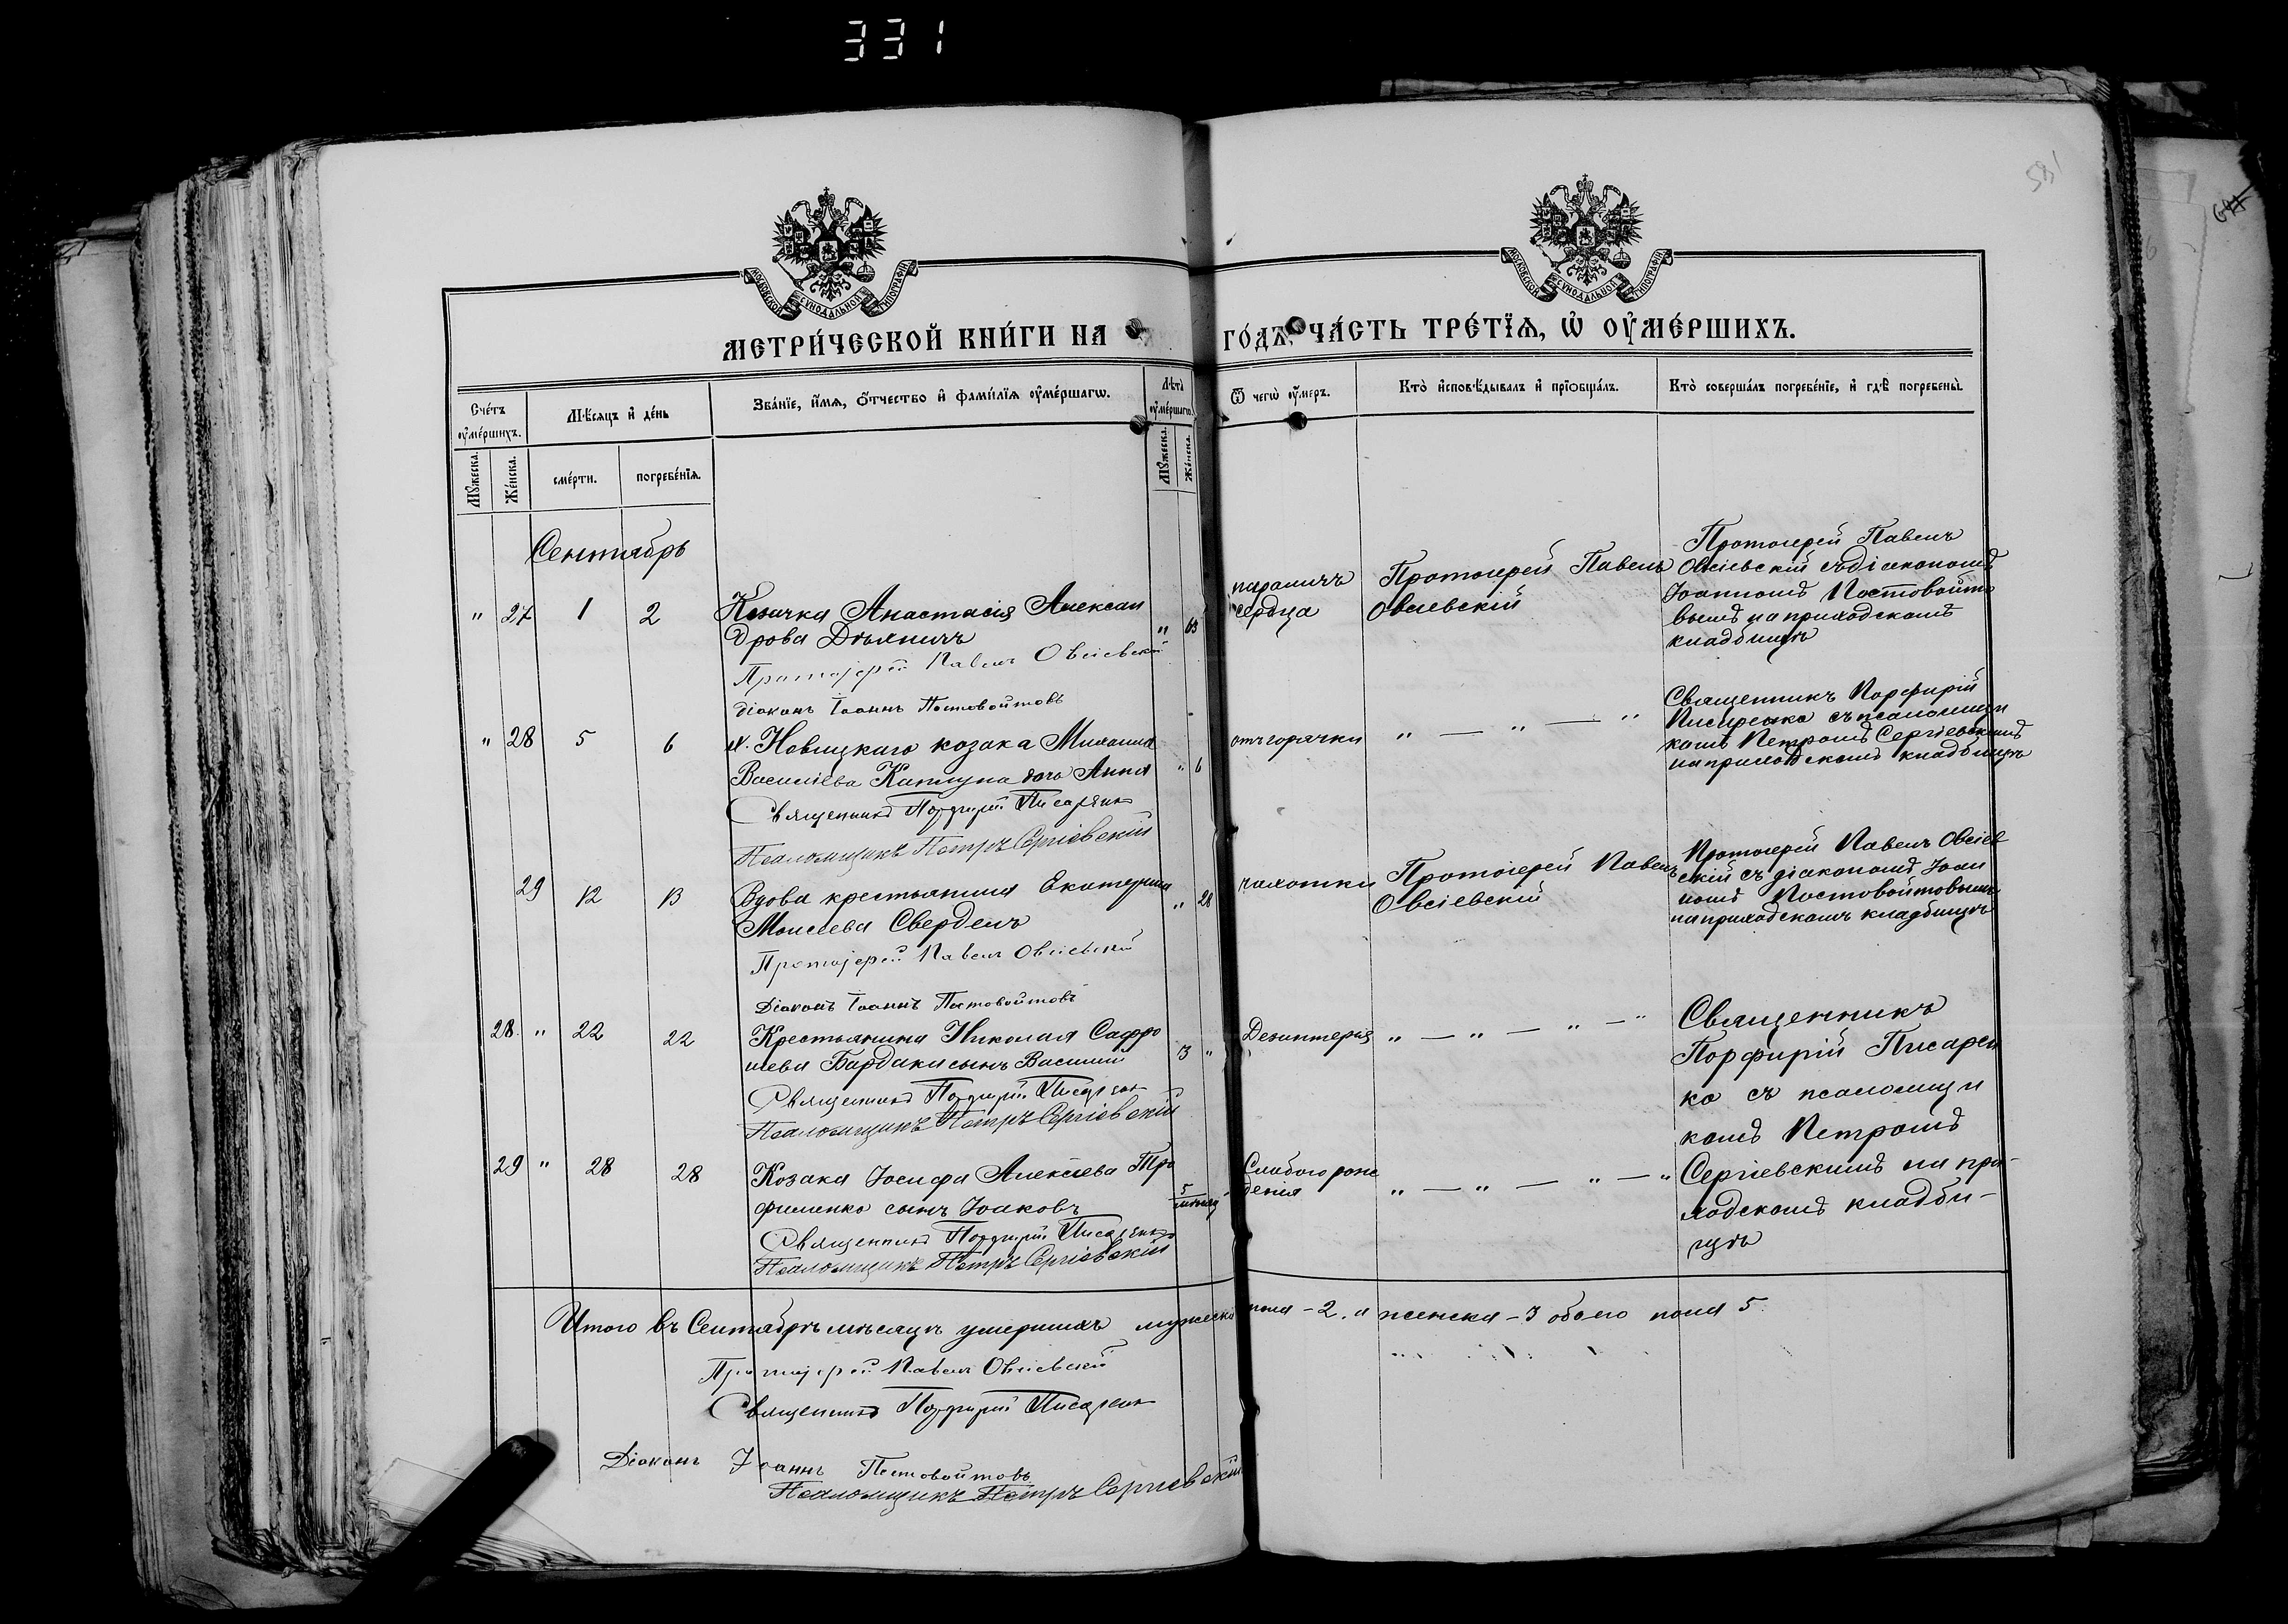 331
581
МОСКОВСКОЙ СУНОДАЛЬНОЙ ТИПОГРАФІИ
МОСКОВСКОЙ СУНОДАЛЬНОЙ ТИПОГРАФІИ
МЕТРИ́ЧЕСКОЙ КНИ́ГИ НА ГО́ДЪ, ЧА́СТЬ ТРЕ́ТЇѦ, Ѡ҆ ОУ҆МЕ́РШИХЪ.
Сче́тъ оу҆ме́ршихъ.
Мѣ́сяцъ и҆ де́нь
Зва́нїе, и҆́мѧ, ѻ҆́тчество и҆ фами́лїѧ оу҆ме́ршагѡ.
Лѣ́та оу҆ме́ршагѡ.
Ѿ чегѡ̀ оу҆́меръ.
Кто̀ и҆сповѣ́дывалъ и҆ прїѻбща́лъ.
Кто̀ соверша́лъ погребе́нїе, и҆ гдѣ̀ погребены̀.
Мꙋ́жеска.
Же́нска.
сме́рти.
погребе́нїѧ.
Мꙋ́жеска.
Же́нска.
Сентябрь
" 27 1 2 Козачка Анастасія Алексан
дрова Дѣяничъ " 63
Протоіерей Павелъ Овсіевскій
діаконъ Іоаннъ Постовойтовъ
параличъ
сердца
Протоіерей Павелъ
Овсіевскій
Протоіерей Павелъ
Овсіевскій съ діакономъ
Іоанномъ Постовойто
вымъ на приходскомъ
кладбищѣ
" 28 5 6 м. Новицкаго козака Михаила
Василіева Катуна дочь Анна " 6
Священникъ Порфирій Писаренко
Псаломщикъ Петръ Сергіевскій
отъ горячки
" — " — "
Священникъ Порфирій
Писаренко съ псаломщи
комъ Петромъ Сергіевскимъ
на приходскомъ кладбищѣ
29 12 13 Вдова крестьянина Екатерина
Моисеева Сверделъ " 28
Протоіерей Павелъ Овсіевскій
Діаконъ Іоаннъ Постовойтовъ
чахотки
Протоіерей Павелъ
Овсіевскій
Протоіерей Павелъ Овсіев
скій съ діакономъ Іоан
номъ Постовойтовымъ
на приходскомъ кладбищѣ
28 " 22 22 Крестьянина Николая Сафро
ніева Бардака сынъ Василій 3 "
Священникъ Порфирій Писаренко
Псаломщикъ Петръ Сергіевскій
Дезинтерія
" — " — " — "
Священникъ
Порфирій Писарен
ко съ псаломщи
комъ Петромъ
Сергіевскимъ на при-
ходскомъ кладби-
щѣ
29 " 28 28 Козака Іосифа Алексіева Тро
фименко сынъ Іаковъ 5
Священникъ Порфирій Писаренко
Псаломщикъ Петръ Сергіевскій
Слабого рож
денія
" — " — " — "
Итого въ Сентябрѣ мѣсяцѣ умершихъ мужеска пола - 2, а женска - 3 обоего пола 5.
Протоіерей Павелъ Овсіевскій
Священникъ Порфирій Писаренко
Діаконъ Іоаннъ Постовойтовъ
Псаломщикъ Петръ Сергіевскій